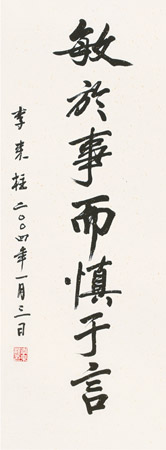 敏於事而慎于言
李来柱二〇〇四年一月三日